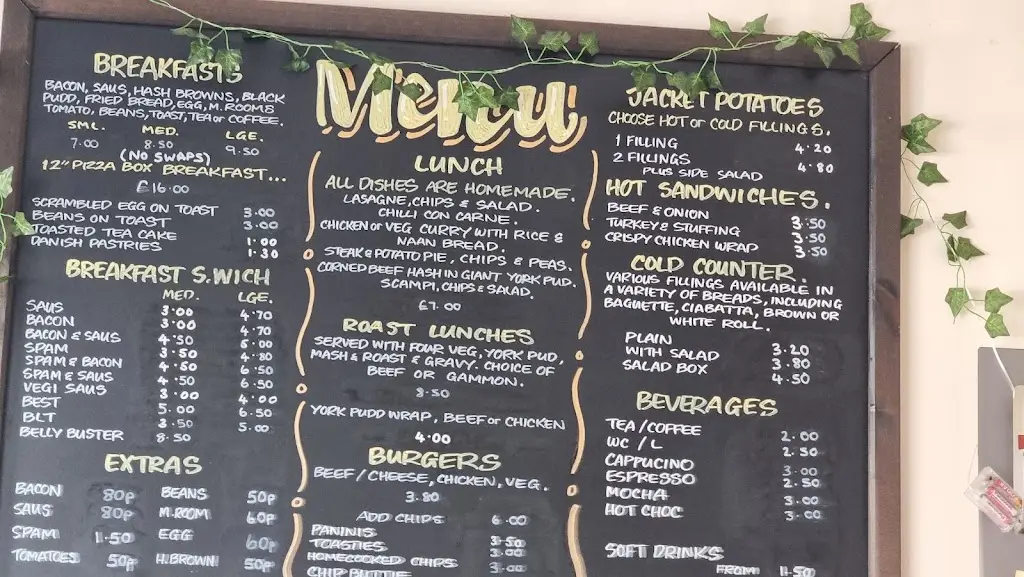 Menu
BREAKFASTS
BACON, SAUS, HASH BROWNS, BLACK
PUDD, FRIED BREAD, EGG, M.ROOMS
TOMATO, BEANS, TOAST, TEA or COFFEE.
SML. MED. LGE.
7.00 8.50 9.50
(NO SWAPS)
12" PIZZA BOX BREAKFAST...
£16.00
SCRAMBLED EGG ON TOAST 3.00
BEANS ON TOAST 3.00
TOASTED TEA CAKE 1.00
DANISH PASTRIES 1.30
BREAKFAST S.WICH
MED. LGE.
SAUS 3.00 4.70
BACON 3.00 4.70
BACON & SAUS 4.50 6.00
SPAM 3.50 4.80
SPAM & BACON 4.50 6.50
SPAM & SAUS 4.50 6.50
VEGI SAUS 3.00 4.00
BEST 5.00 6.50
BLT 3.50 5.00
BELLY BUSTER 8.50
EXTRAS
BACON 80p BEANS 50p
SAUS 80p M.ROOM 60p
SPAM 1.50 EGG 60p
TOMATOES 50p H.BROWN 50p
LUNCH
ALL DISHES ARE HOMEMADE.
LASAGNE, CHIPS & SALAD.
CHILLI CON CARNE.
CHICKEN or VEG CURRY WITH RICE &
NAAN BREAD.
STEAK & POTATO PIE, CHIPS & PEAS.
CORNED BEEF HASH IN GIANT YORK PUD.
SCAMPI, CHIPS & SALAD.
£7.00
ROAST LUNCHES
SERVED WITH FOUR VEG, YORK PUD,
MASH & ROAST & GRAVY. CHOICE OF
BEEF OR GAMMON.
8.50
YORK PUDD WRAP, BEEF or CHICKEN
4.00
BURGERS
BEEF / CHEESE, CHICKEN, VEG.
3.80
ADD CHIPS 6.00
PANINIS 3.50
TOASTIES 3.00
HOMECOOKED CHIPS 3.00
CHIP BUTTIE
JACKET POTATOES
CHOOSE HOT or COLD FILLINGS.
1 FILLING 4.20
2 FILLINGS 4.80
PLUS SIDE SALAD
HOT SANDWICHES.
BEEF & ONION 3.50
TURKEY & STUFFING 3.50
CRISPY CHICKEN WRAP 3.50
COLD COUNTER.
VARIOUS FILLINGS AVAILABLE IN
A VARIETY OF BREADS, INCLUDING
BAGUETTE, CIABATTA, BROWN OR
WHITE ROLL.
PLAIN 3.20
WITH SALAD 3.80
SALAD BOX 4.50
BEVERAGES
TEA / COFFEE 2.00
WC / L 2.50
CAPPUCINO 3.00
ESPRESSO 2.50
MOCHA 3.00
HOT CHOC 3.00
SOFT DRINKS
FROM 1.50